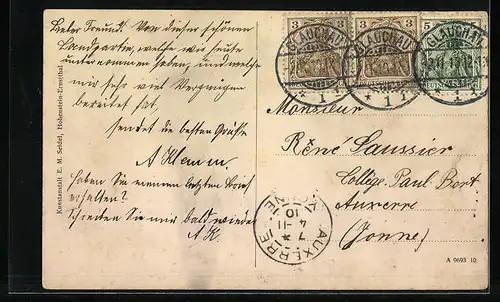 Lieber Freund! Von dieser schönen
Landpartie, welche wir heute
unternommen haben, und welche
mir sehr viel Vergnügen
bereitet hat,
sendet die besten Grüße
A
Haben Sie meinen letzten Brief
erhalten?
Schreiben Sie mir bald wieder
A K.
Kunstanstalt E. M. Seidel, Hohenstein-Ernstthal
3 3 5
GLAUCHAU
GLAUCHAU
GLAUCHAU
* 1 *
* 1
1
Monsieur
Réné Saussier
Collège Paul Bert
Auxerre
(Yonne)
AUXERRE
YONNE
A 9693 10